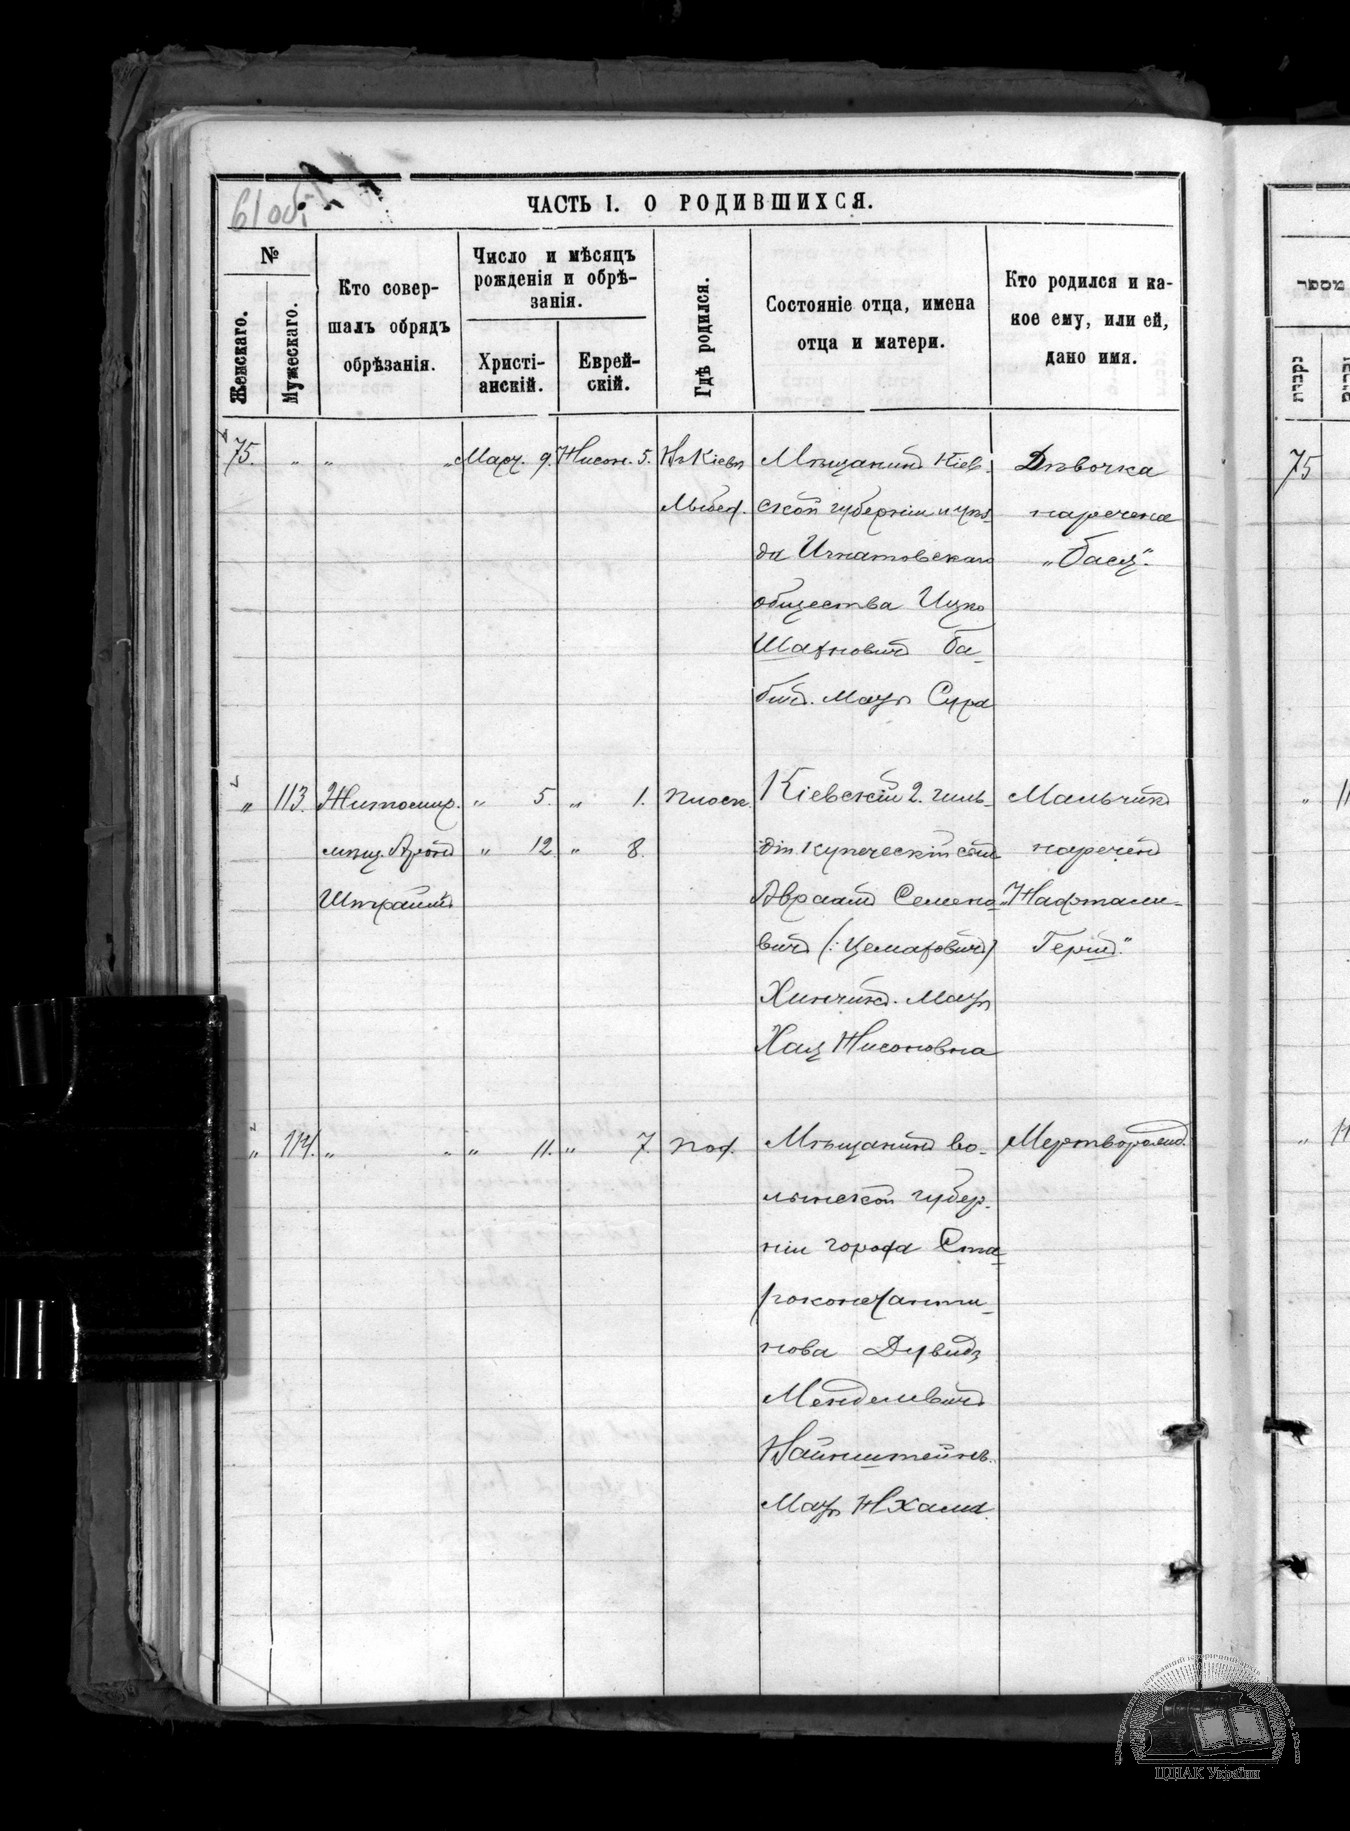 61 об.
ЧАСТЬ I. О РОДИВШИХСЯ.
№
Женскаго.
Мужескаго.
Кто совер-
шалъ обрядъ
обрѣзанія.
Число и мѣсяцъ
рожденія и обрѣ-
занія.
Христі-
анскій.
Еврей-
скій.
Гдѣ родился.
Состояніе отца, имена
отца и матери.
Кто родился и ка-
кое ему, или ей,
дано имя.
75. " " " Март. 9. Нисон. 5. Въ Кіевѣ Мѣщанинъ Кіев-
Лыбед. ской губерніи и уѣз-
да Игнатовскаго
общества Ицко
Шахновичъ Ба-
бичъ. Мать Сура
Дѣвочка
наречена
„Бася".
" 113. Житомир. " 5. " 1. Плоск. Кіевскій 2. гиль-
мѣщ. Аронъ " 12 " 8. діи купеческій сынъ
Штраймъ Авраамъ Семено-
вичъ (: Цемаховичъ)
Хинчинъ. Мать
Хая Нисоновна
Мальчикъ
нареченъ
„Нафтали-
Герцъ."
" 114. " " " 11. " 7. Под. Мѣщанинъ во-
лынской губер-
ніи города Ста-
роконстанти-
нова Дувидъ
Менделевичъ
Вайнштейнъ.
Мать
Мертворожд.
מספר
נקבות
75
"
"
ЦДІАК України